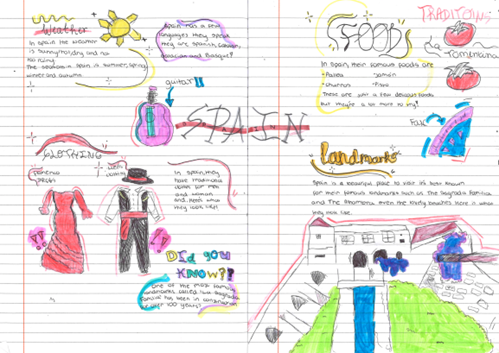 Weather
In Spain the weather
is sunny/holiday and no
too rainy.
The seasons in Spain is summer, spring
winter and autumn.
Spain has a few
languages they speak
they are Spanish, Catalan,
Galician and Basque!!
guitar!!
SPAIN
CLOTHING
In Spain, they
have traditional
clothes for men
and women
and here's what
they look like!
Did you
KNOW??
One of the most famous
landmarks called the Sagrada
Familia has been in construction
for over 100 years!
FOODS
In Spain, their famous foods are
• Paella
• Jamón
• Churros
There are just a few delicious foods
but there's a lot more to try!
TRADITOINS
La
Tomatina
Fan
landmarks
Spain is a beautiful place to visit it's best known
for their famous landmarks such as the Sagrada Familia
and the Alhambra even the
they look like.